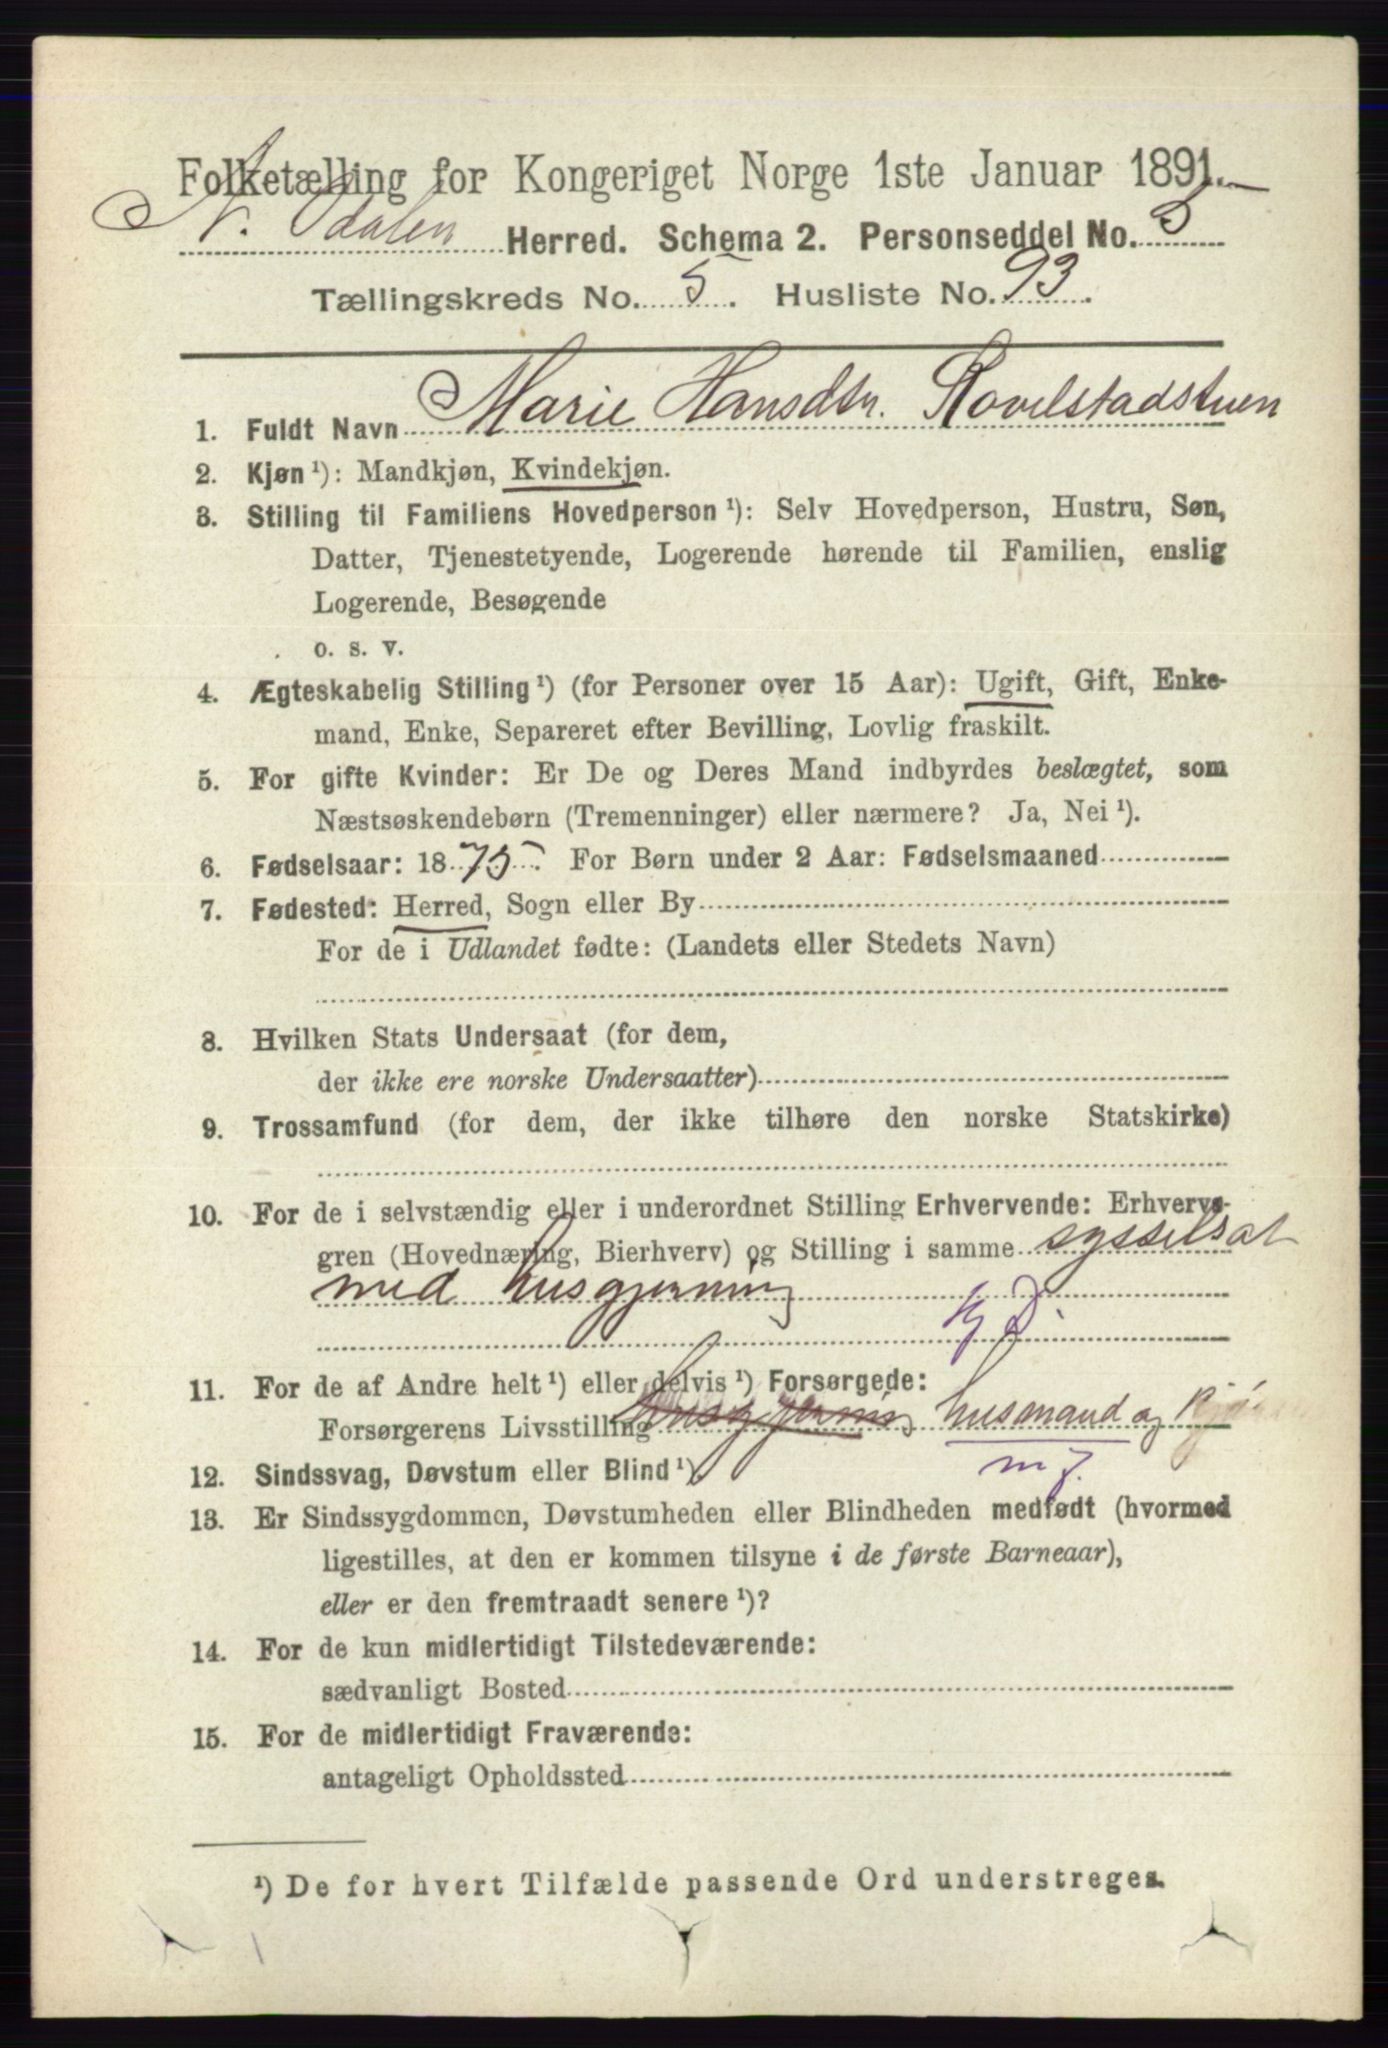 Folketælling for Kongeriget Norge 1ste Januar 1891.
N. Odalen Herred. Schema 2. Personseddel No. 5
Tællingskreds No. 5. Husliste No. 93.
1. Fuldt Navn Marie Hansdtr. Rovelstadstuen
2. Kjøn ¹): Mandkjøn, Kvindekjøn.
3. Stilling til Familiens Hovedperson ¹): Selv Hovedperson, Hustru, Søn,
Datter, Tjenestetyende, Logerende hørende til Familien, enslig
Logerende, Besøgende
o. s. v.
4. Ægteskabelig Stilling ¹) (for Personer over 15 Aar): Ugift, Gift, Enke-
mand, Enke, Separeret efter Bevilling, Lovlig fraskilt.
5. For gifte Kvinder: Er De og Deres Mand indbyrdes beslægtet, som
Næstsøskendebørn (Tremenninger) eller nærmere? Ja, Nei ¹).
6. Fødselsaar: 1875. For Børn under 2 Aar: Fødselsmaaned
7. Fødested: Herred, Sogn eller By
For de i Udlandet fødte: (Landets eller Stedets Navn)
8. Hvilken Stats Undersaat (for dem,
der ikke ere norske Undersaatter)
9. Trossamfund (for dem, der ikke tilhøre den norske Statskirke)
10. For de i selvstændig eller i underordnet Stilling Erhvervende: Erhvervs-
gren (Hovednæring, Bierhverv) og Stilling i samme sysselsat
med husgjerning
11. For de af Andre helt ¹) eller delvis ¹) Forsørgede:
Forsørgerens Livsstilling husgjerning husmand og
12. Sindssvag, Døvstum eller Blind ¹).
13. Er Sindssygdommen, Døvstumheden eller Blindheden medfødt (hvormed
ligestilles, at den er kommen tilsyne i de første Barneaar),
eller er den fremtraadt senere ¹)?
14. For de kun midlertidigt Tilstedeværende:
sædvanligt Bosted
15. For de midlertidigt Fraværende:
antageligt Opholdssted
¹) De for hvert Tilfælde passende Ord understreges.